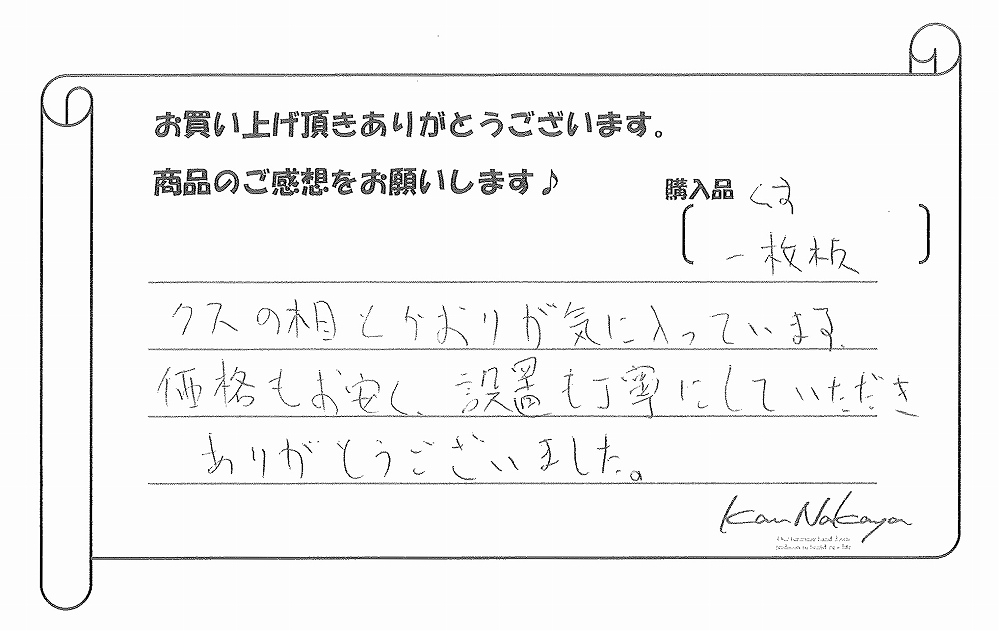 お買い上げ頂きありがとうございます。
商品のご感想をお願いします♪
購入品 くす
一枚板
クスの木目とかおりが気に入っています。
価格もお安く、設置も丁寧にしていただき
ありがとうございました。
Kan Nakaya